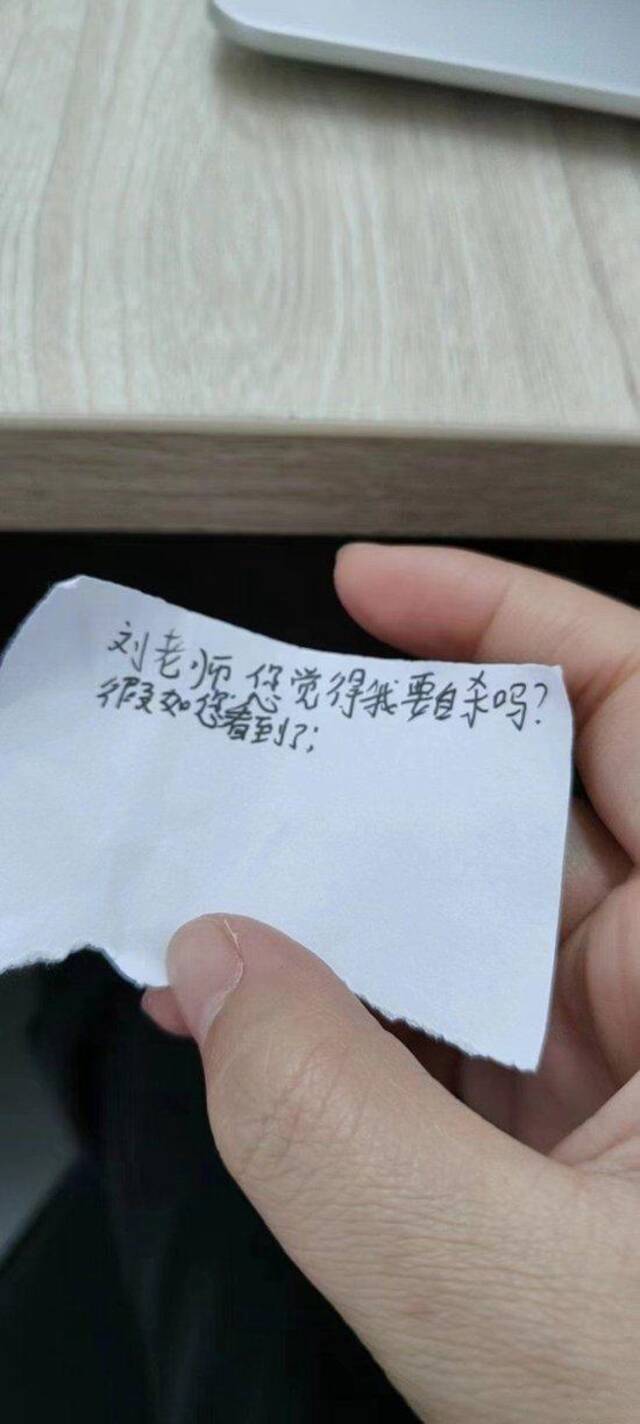 刘老师 你觉得我要自杀吗?
假如您看到了;